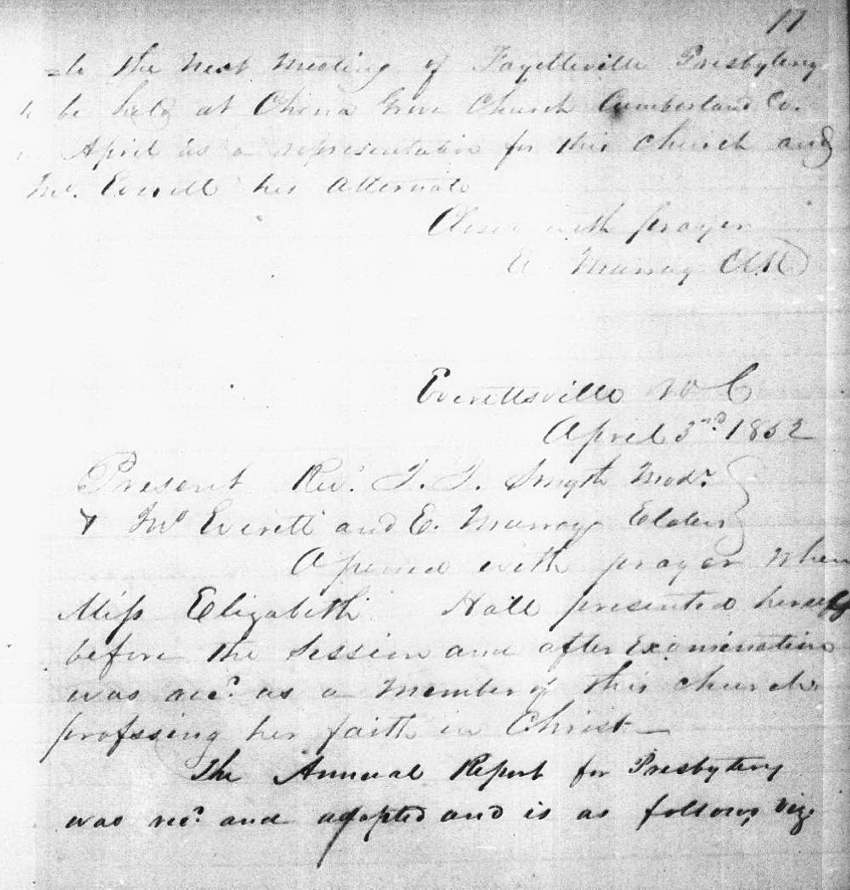 17
=to the next meeting of Fayetteville Presbytery
be held at China Grove Church Cumberland Co.
April as a representative for this church and
Mr. Everett his alternate
Closed with prayer
E Murray Clk
Everettsville N C
April 3rd 1852
Present Rev. T. T. Smyth Modr.
& Mr Everett and E. Murray Elders
Opened with prayer when
Miss Elizabeth Hall presented herself
before the session and after examination
was recd. as a member of this church
professing her faith in Christ—
The Annual Report for Presbytery
was recd. and adopted and is as follows viz